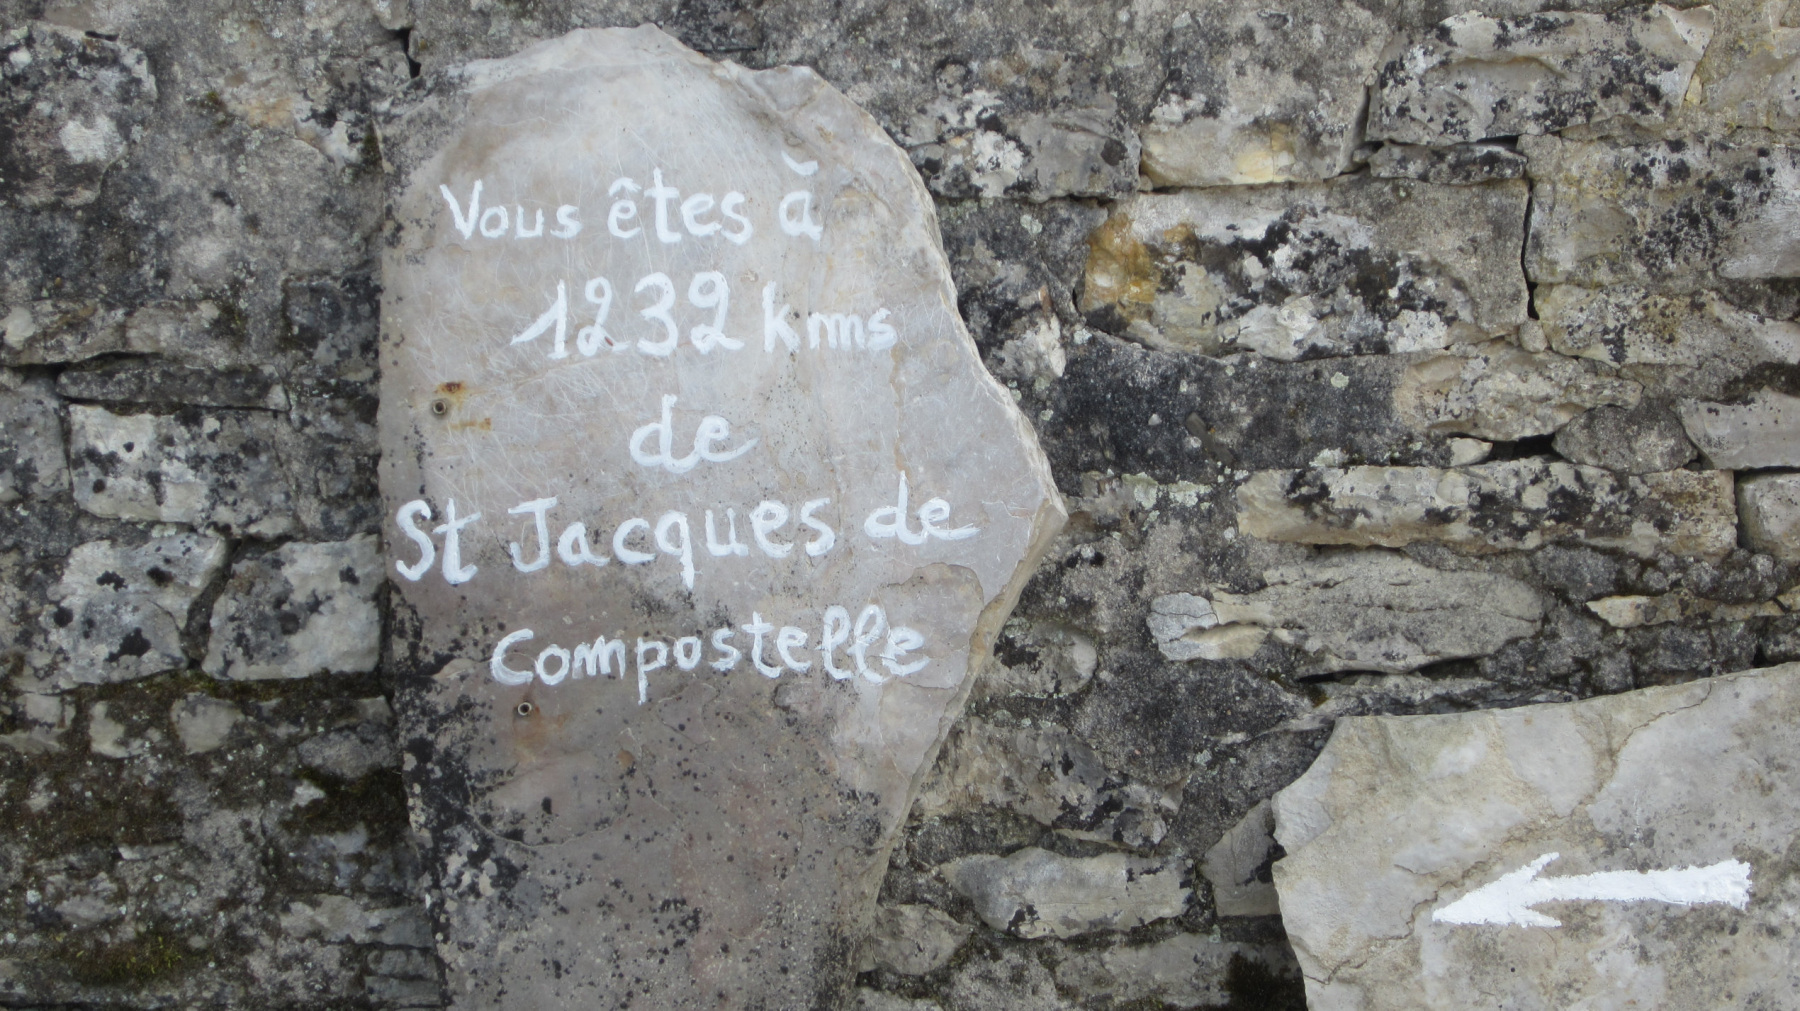 Vous êtes à
1232 kms
de
St Jacques de
Compostelle